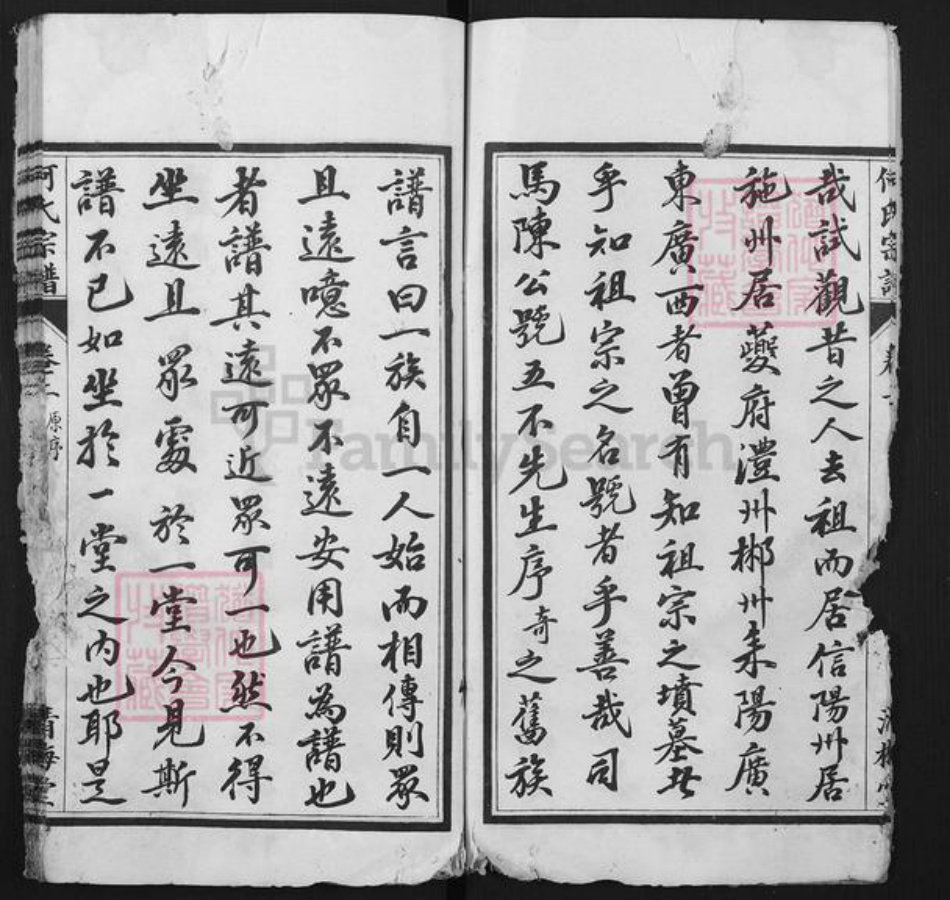 哉試觀昔之人去祖而居信陽州居
施州居夔府澧州郴州耒陽廣
東廣西者曾有知祖宗之墳墓者
乎知祖宗之名號者乎善哉司
馬陳公號五不先生序奇之舊族
譜言曰一族自一人始而相傳則眾
且遠噫不眾不遠安用譜為譜也
者譜其遠可近眾可一也然不得
坐遠且眾處於一堂今見斯
譜不已如坐於一堂之內也耶是
何氏宗譜 卷之二 原序
FamilySearch